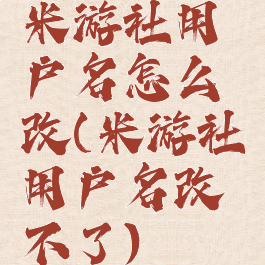 米游社用
户名怎么
改(米游社
用户名改
不了)